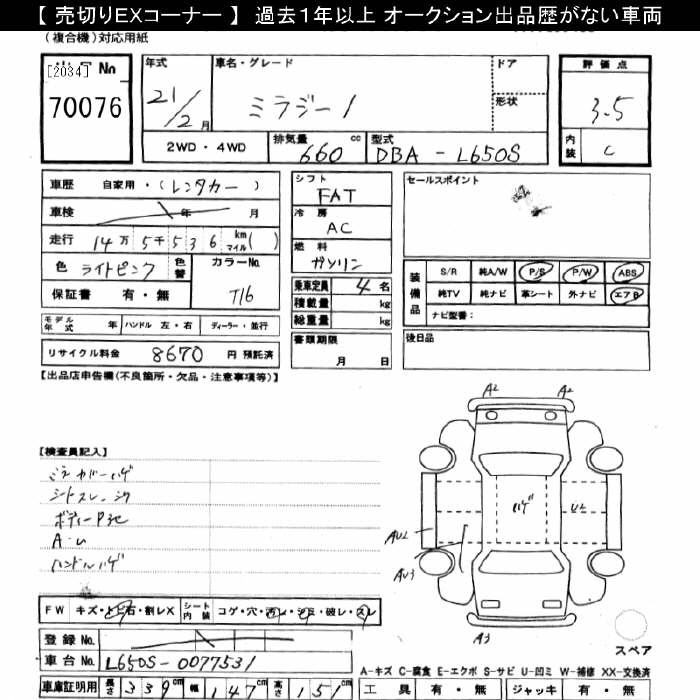 【 売切りEXコーナー 】 過去1年以上 オークション出品歴がない車両
(複合機)対応用紙
[2034] No
70076
年式
21/2月
車名・グレード
ミラジーノ
ドア
形状
評価点
3.5
内装
C
2WD・4WD
排気量 660 cc
型式 DBA - L650S
車歴 自家用・(レンタカー)
車検 年 月
走行 14万5千536 km マイル( )
色 ライトピンク
色替
カラーNo.
T16
保証書 有・無
モデル年式 年 ハンドル 左・右 ディーラー・並行
リサイクル料金 8670 円 預託済
シフト
FAT
冷房
AC
燃料
ガソリン
乗車定員 4名
積載量 kg
総重量 kg
書類期限
月 日
セールスポイント
装備品
S/R 純A/W P/S P/W ABS
純TV 純ナビ 革シート 外ナビ エアB
ナビ型番:
後日品
【出品店申告欄(不良箇所・欠品・注意事項等)】
【検査員記入】
シートスレ
A・U
ハンドルハゲ
A2 A2
ハゲ
AU2
AU3
A3
スペア
FW キズ・トビ石・割レX
シート内装 コゲ・穴・汚レ・シミ・破レ・スレ
登録No.
車台No. L650S-0077531
車庫証明用 長さ 339cm 幅 147cm 高さ 151cm
A-キズ C-腐食 E-エクボ S-サビ U-凹ミ W-補修 XX-交換済
工具 有・無 ジャッキ 有・無